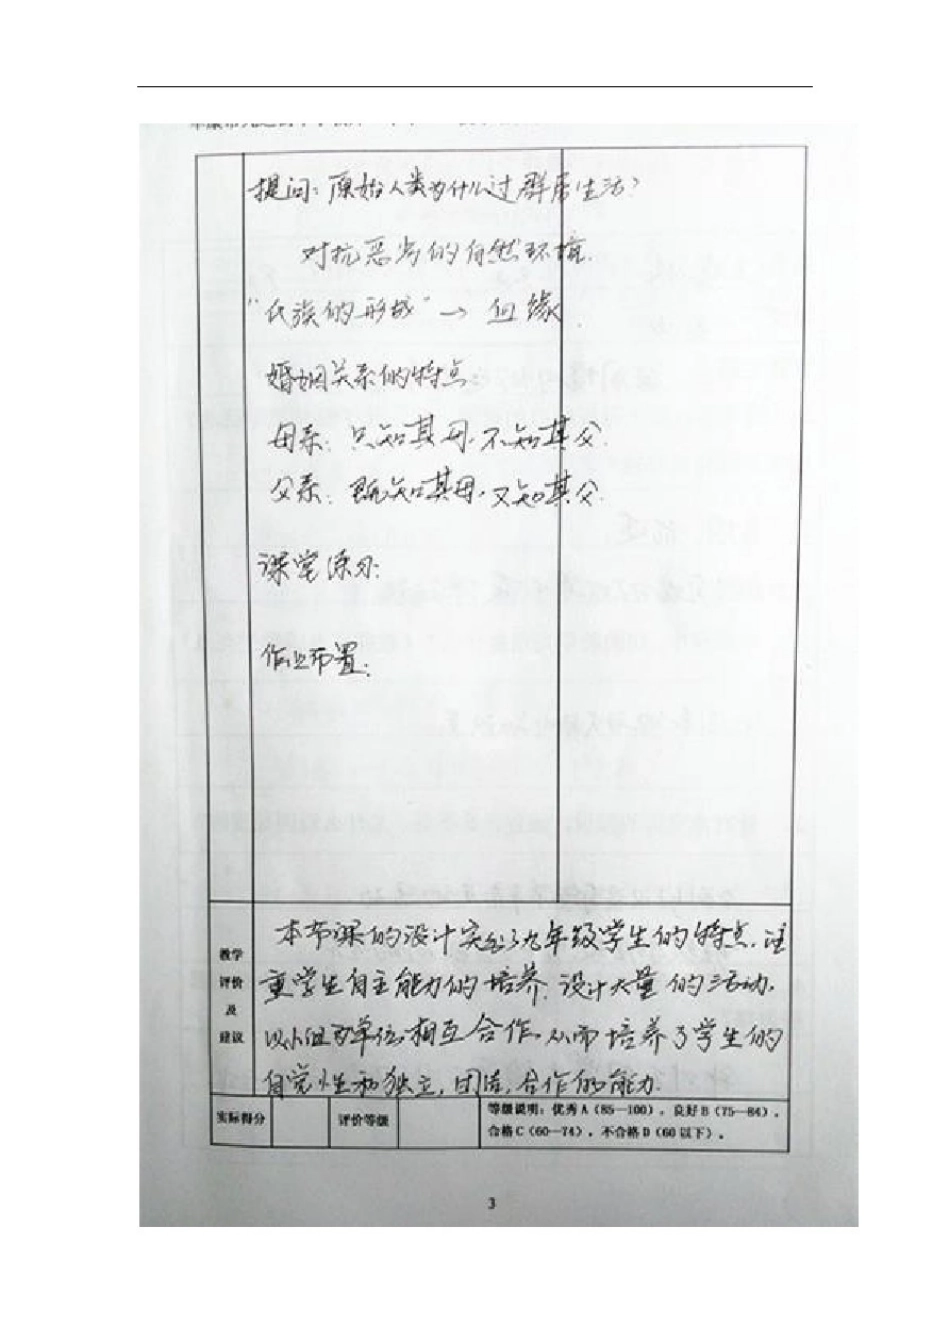 提问：原始人类为什么过群居生活？
对抗恶劣的自然环境.
"氏族的形成" → 血缘.
婚姻关系的特点：
母系：只知其母,不知其父.
父系：既知其母,又知其父.
课堂练习：
作业布置：
教学评价及建议
本节课的设计突出了九年级学生的特点.注
重学生自主能力的培养.设计大量的活动.
以小组为单位,相互合作.从而培养了学生的
自觉性和独立,团结,合作的能力.
实际得分 评价等级 等级说明：优秀 A（85—100），良好 B（75—84），
合格 C（60—74），不合格 D（60 以下）。
3